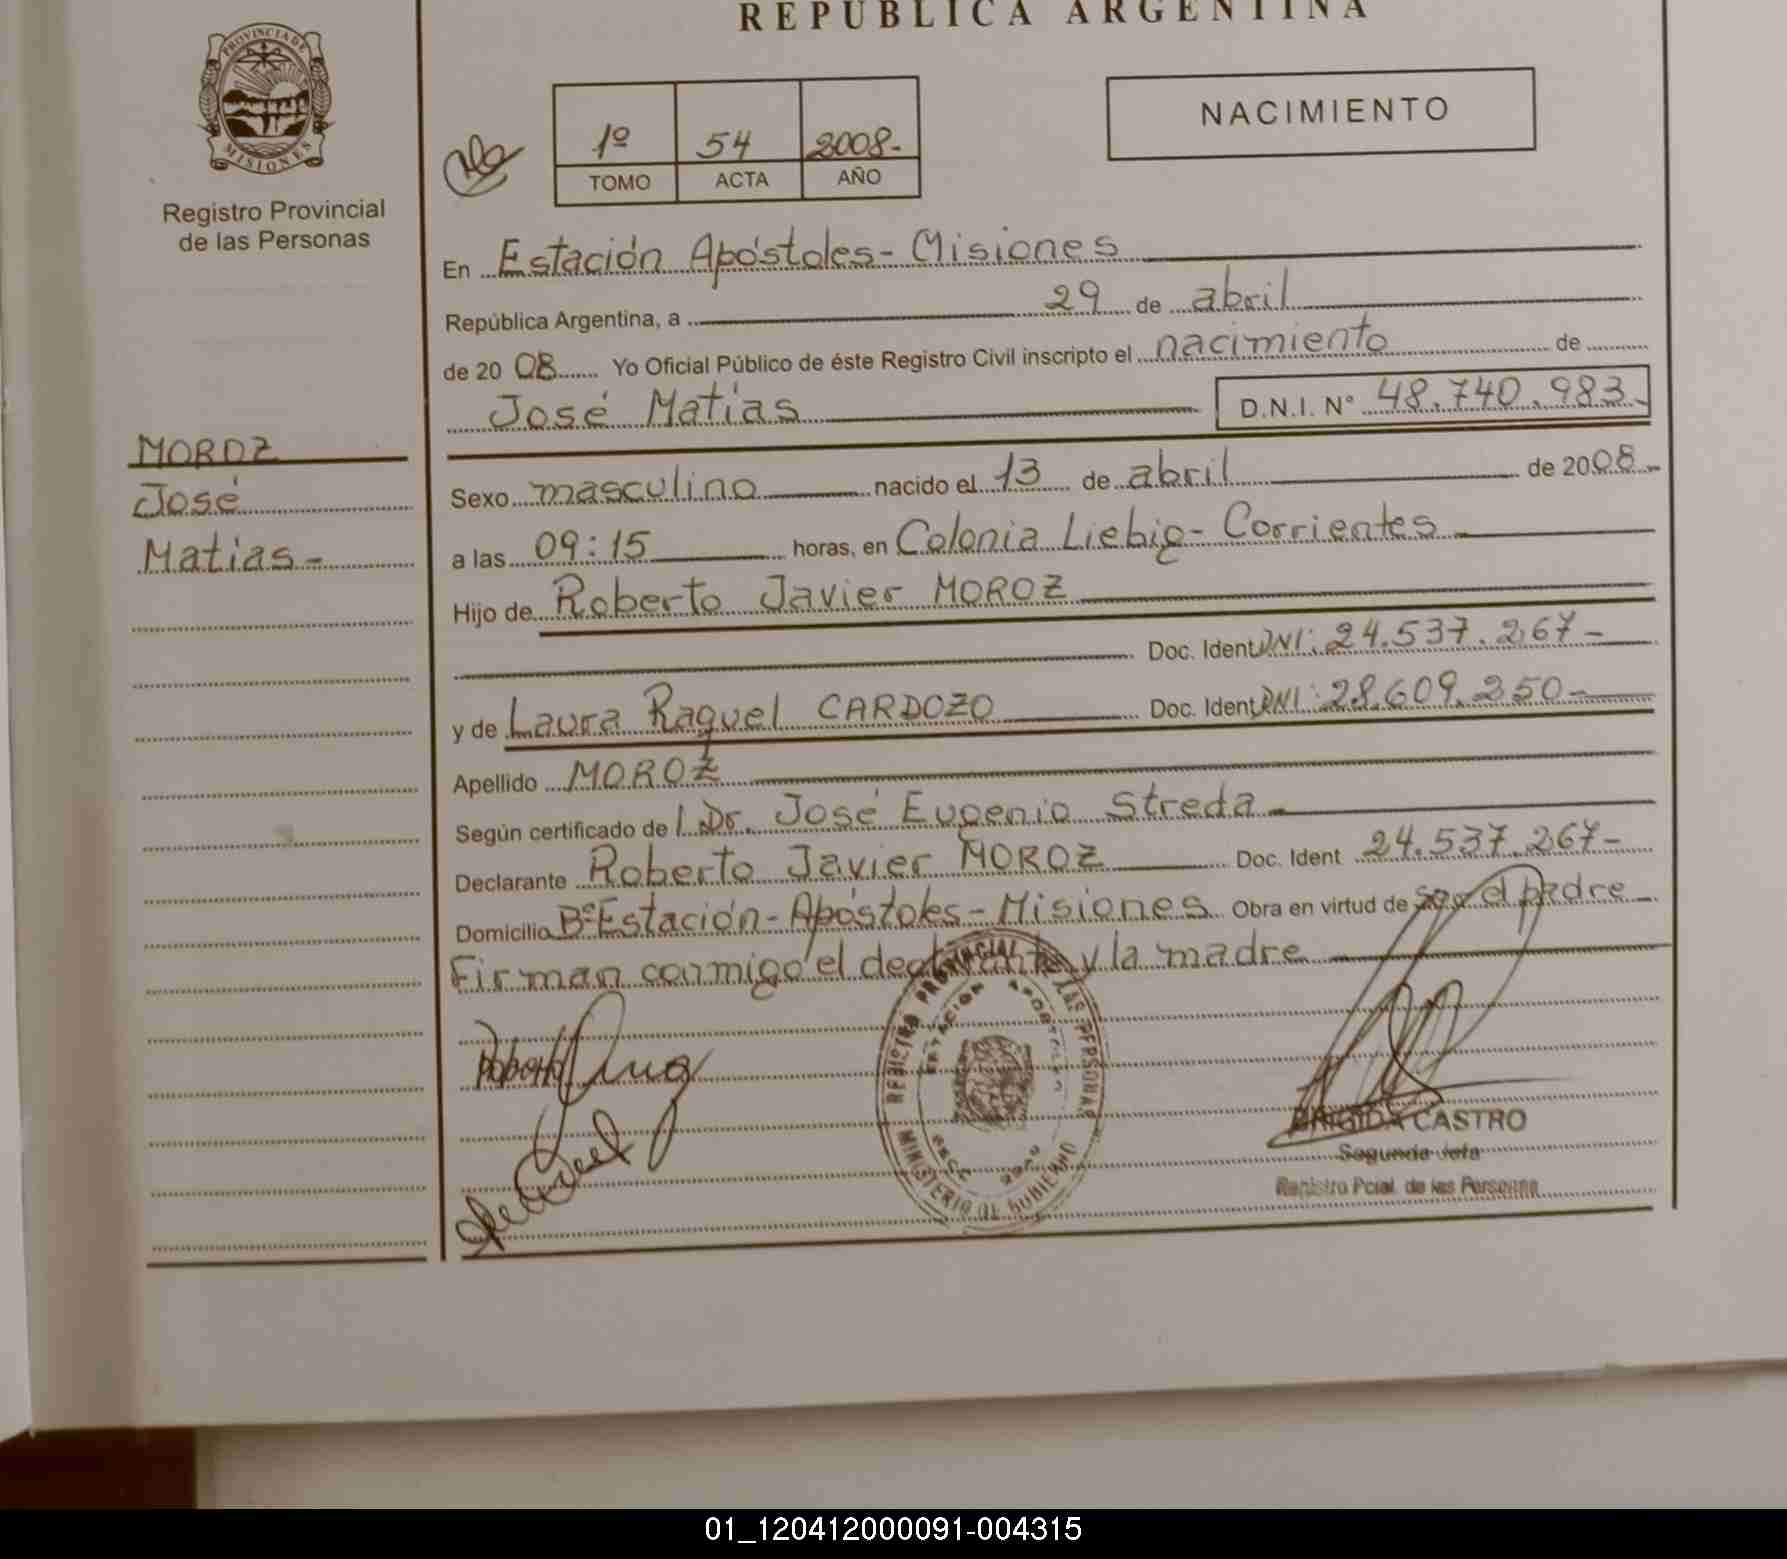 REPUBLICA ARGENTINA
PROVINCIA DE
MISIONES
Registro Provincial
de las Personas
1º 54 2008-
TOMO ACTA AÑO
NACIMIENTO
En Estación Apóstoles - Misiones
República Argentina, a 29 de abril
de 20 08 Yo Oficial Público de éste Registro Civil inscripto el nacimiento de
José Matías D.N.I. Nº 48.740.983-
MOROZ
José
Matias-
Sexo masculino nacido el 13 de abril de 2008-
a las 09:15 horas, en Colonia Liebig - Corrientes
Hijo de Roberto Javier MOROZ
Doc. Ident DNI: 24.537.267-
y de Laura Raquel CARDOZO Doc. Ident DNI: 28.609.250-
Apellido MOROZ
Según certificado de l Dr. José Eugenio Streda-
Declarante Roberto Javier MOROZ Doc. Ident 24.537.267-
Domicilio Bº Estación - Apóstoles - Misiones Obra en virtud de ser el padre
Firman conmigo el declarante y la madre
REGISTRO PROVINCIAL DE LAS PERSONAS
ESTACION APOSTOLES
MINISTERIO DE GOBIERNO
BRIGIDA CASTRO
Segunda Jefa
Registro Pcial. de las Personas
01_120412000091-004315